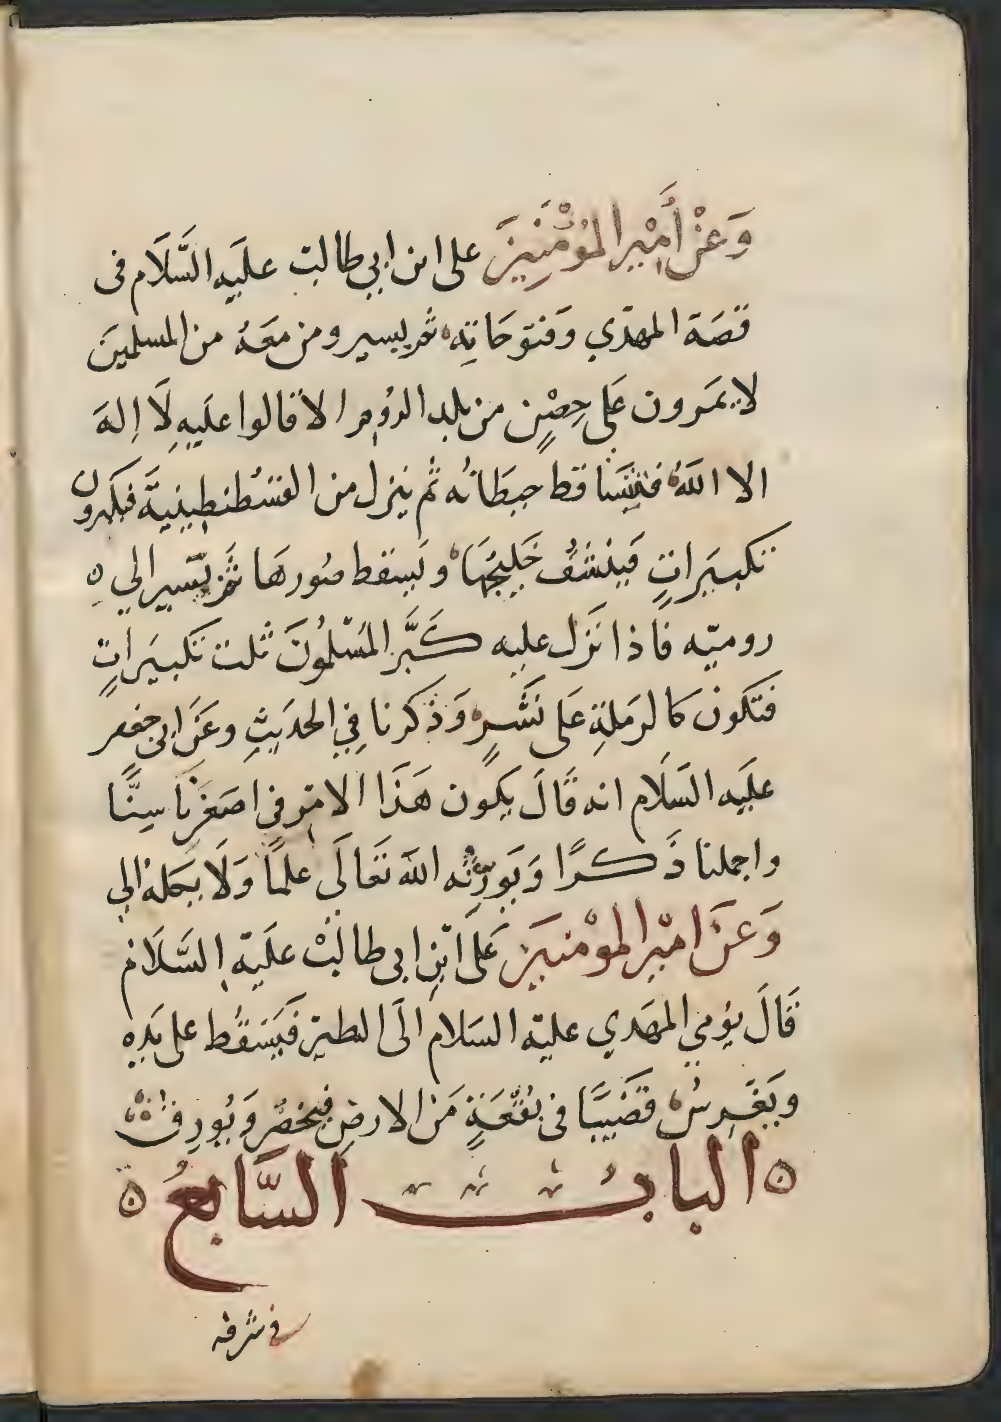 وَعَنْ أَمِيْرِ المُؤْمِنِينَ على ابن ابي طالب علَيه السَّلَام فى
قصَة المهدي وَفتوحَاتِه ثم يسير ومن معَهُ من المسلمينَ
لا يمَرون عَلى حِصْنٍ من بلد الرُومِ الا قالوا عليَه لَا اِلهَ
الا اللَّهُ فتَتَسَاقط حيطَانُه ثم ينزل من القسْطنطِينيَّة فيكبرون
تكبيَراتٍ فَينشفُ خَلِيجُهَا ويَسقط سُورهَا ثمَّ يَسير الي ه
روميّه فاذا نَزل عليه كَبَّر المُسْلمُونَ ثلث تكبيَراتٍ
فتكون كالرَملةِ عَلى نَشَرٍ وَذكرنا فِي الحَديثِ وعَن ابى جعفر
علَيه السَلَام انه قَالَ يكون هَذَا الامر في اصَغرنَا سِنًّا
واجملنا ذَكرًا وَيَورثه اللهَ تعَالَى علمًا وَلَا يكلهُ الي
وَعَنَ امْير المؤْمنيَن عَلى ابْنِ ابى طالبْ علَيهْ السَّلَام
قَالَ يؤمي المهَدي عليهْ السَلام الَى الطيرْ فَيَسقُط على يَدِهِ
ويَغرسُ قَضيبًا فى بقعَةٍ مَن الارضِ فيخضرّ وَيُورق
ه البابُ السَّابعُ ه
فى شرفه